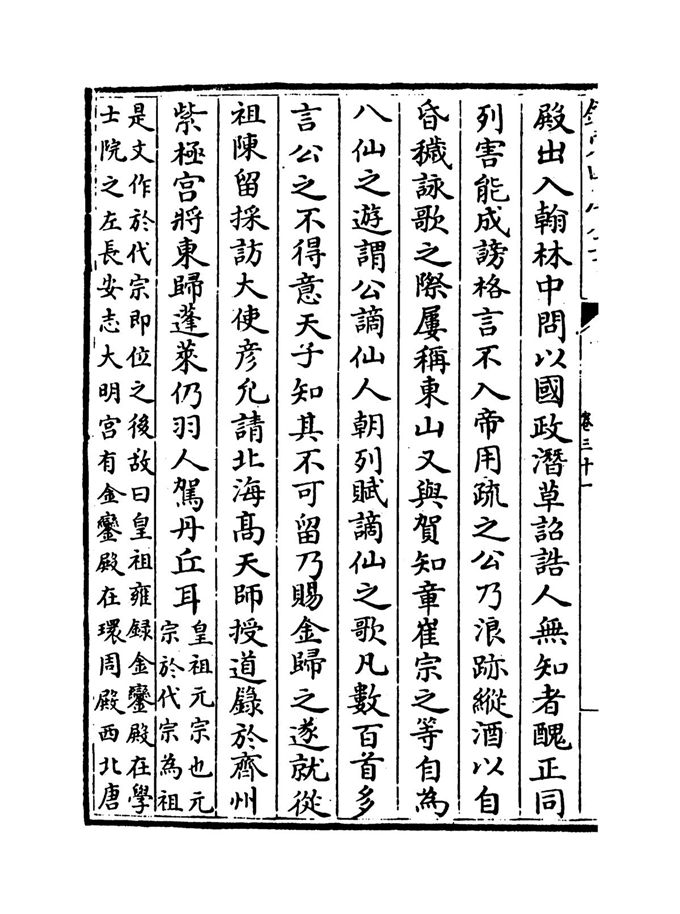 卷三十一
殿出入翰林中問以國政潛草詔誥人無知者醜正同
列害能成謗格言不入帝用疏之公乃浪跡縱酒以自
昏穢詠歌之際屢稱東山又與賀知章崔宗之等自為
八仙之遊謂公謫仙人朝列賦謫仙之歌凡數百首多
言公之不得意天子知其不可留乃賜金歸之遂就從
祖陳留採訪大使彥允請北海髙天師授道籙於齊州
紫極宮將東歸蓬萊仍羽人駕丹丘耳
皇祖元宗也元
宗於代宗為祖
是文作於代宗即位之後故曰皇祖雍録金鑾殿在學
士院之左長安志大明宮有金鑾殿在環周殿西北唐